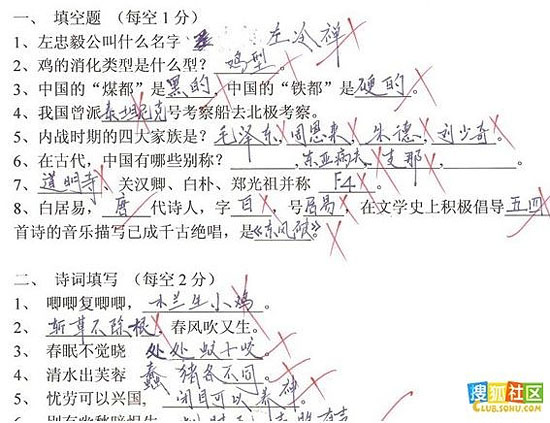 一、填空题（每空1分）
1、左忠毅公叫什么名字 左冷禅
2、鸡的消化类型是什么型？ 鸡型 。
3、中国的“煤都”是 黑的 中国的“铁都”是 硬的
4、我国曾派 泰坦尼克 号考察船去北极考察。
5、内战时期的四大家族是？ 毛泽东 周恩来 朱德 刘少奇
6、在古代，中国有哪些别称？ ， 东亚病夫 支那 ， 。
7、 道明寺 、关汉卿、白朴、郑光祖并称 F4
8、白居易， 唐 代诗人，字 白 ，号 居易 ，在文学史上积极倡导 五四
首诗的音乐描写已成千古绝唱，是 《东风破》
二、诗词填写（每空2分）
1、唧唧复唧唧， 木兰生小鸡 。
2、 斩草不除根 ，春风吹又生。
3、春眠不觉晓 处处蚊子咬
4、清水出芙蓉 蠢猪各不同
5、忧劳可以兴国， 闭目可以养神
搜狐社区
CLUB.SOHU.COM